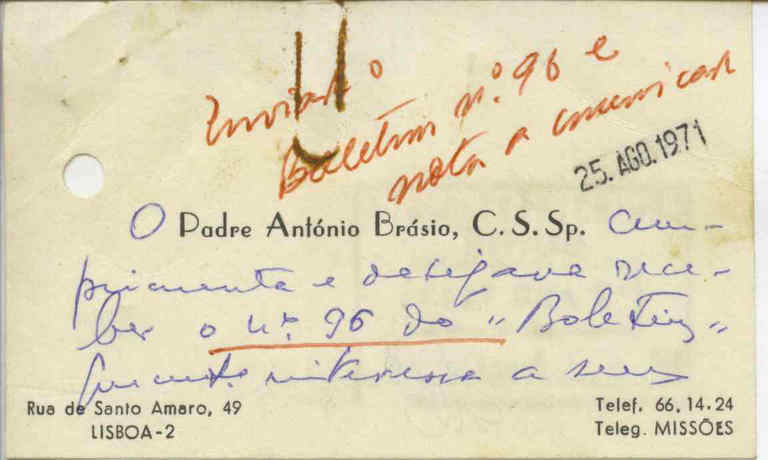 Enviado o
Boletim n.º 96 e
nota a comunicar
25. AGO. 1971
O Padre António Brásio, C. S. Sp. cum-
primenta e desejava rece-
ber o n.º 96 do "Boletim"
interessa a seus
Rua de Santo Amaro, 49
LISBOA-2
Telef. 66.14.24
Teleg. MISSÕES